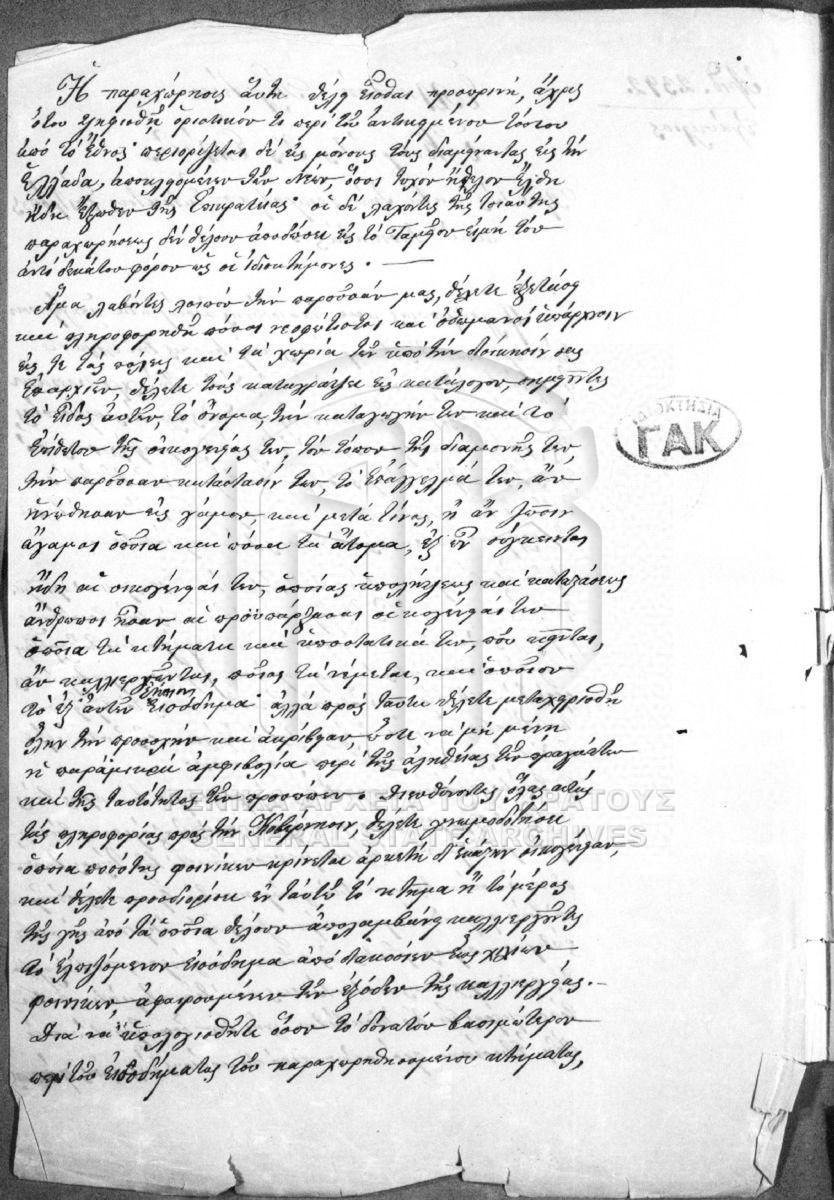 Ἡ παραχώρησις αὕτη θέλει εἶσθαι προσωρινή, ἄχρις
ὅτου ψηφισθῇ ὁριστικῶς τὸ περὶ τοῦ ἀντικειμένου τούτου
ὑπὸ τοῦ Ἔθνους· περιορίζεται δὲ εἰς μόνους τοὺς διαμείναντας εἰς τὴν
Ἑλλάδα, ἀποκλειομένων τῶν νέων, ὅσοι τυχὸν ἤθελον ἔλθει
ἤδη ἔξωθεν τῆς Ἐπικρατείας· οἱ δὲ λαχόντες τῆς τοιαύτης
παραχωρήσεως δὲν θέλουν ἀποδώσει εἰς τὸ Ταμεῖον εἰμὴ τὸν
ἀντὶ δεκάτου φόρον ὡς οἱ ἰδιοκτήμονες. —
Ἅμα λαβόντες λοιπὸν τὴν παροῦσάν μας, θέλετε ἐξετάσει
καὶ πληροφορηθῆ πόσοι νεοφώτιστοι καὶ ὀθωμανοὶ ὑπάρχουν
εἴς τε τὰς πόλεις καὶ τὰ χωρία τῶν ὑπὸ τὴν διοίκησίν σας
Ἐπαρχιῶν, θέλετε τοὺς καταγράψει εἰς κατάλογον, σημειοῦντες
τὸ εἶδος αὐτῶν, τὸ ὄνομα, τὴν καταγωγήν των καὶ τὸ
ἐπίθετον τῆς οἰκογενείας των, τὸν τόπον τῆς διαμονῆς των,
τὴν παροῦσαν κατάστασίν των, τὸ ἐπάγγελμά των, ἂν
ἡνώθησαν εἰς γάμον, καὶ μετὰ τίνος, ἢ ἂν ζῶσιν
ἄγαμοι ὁποῖα καὶ πόσα τὰ ἄτομα, ἐξ ὧν σύγκεινται
ἤδη αἱ οἰκογένειαί των, ὁποίας ὑπολήψεως καὶ καταστάσεως
ἄνθρωποι ἦσαν αἱ προϋπάρξασαι οἰκογένειαί των
ὁποῖα τὰ κτήματα καὶ ὑποστατικά των, ποῦ κεῖνται,
ἂν καλλιεργοῦνται, ποῖος τὰ νέμεται, καὶ ὁποῖον
τὸ ἐξ αὐτῶν ἐτήσιον εἰσόδημα· ἀλλὰ πρὸς ταῦτα θέλετε μεταχειρισθῆ
ὅλην τὴν προσοχὴν καὶ ἀκρίβειαν, ὥστε νὰ μὴ μένῃ
ἡ παραμικρὰ ἀμφιβολία περὶ τῆς ἀληθείας τῶν πραγμάτων
καὶ τῆς ταυτότητος τῶν προσώπων. Διευθύνοντες ὅλας αὐτὰς
τὰς πληροφορίας πρὸς τὴν Κυβέρνησιν, θέλετε γνωμοδοτήσει
ὁποία ποσότης φοινίκων κρίνεται ἀρκετὴ δι' ἑκάστην οἰκογένειαν,
καὶ θέλετε προσδιορίσει ἐν ταυτῷ τὸ κτῆμα ἢ τὸ μέρος
τῆς γῆς ἀπὸ τὰ ὁποῖα θέλουν ἀπολαμβάνει καλλιεργοῦντες
τὸ ἐλπιζόμενον εἰσόδημα ἀπὸ διακοσίων ἕως χιλίων
φοινίκων, ἀφαιρουμένων τῶν ἐξόδων τῆς καλλιεργείας. —
Διὰ νὰ ὑπολογισθῆτε ὅσον τὸ δυνατὸν βασιμώτερον
περὶ τοῦ εἰσοδήματος τοῦ παραχωρηθησομένου κτήματος,
ΙΔΙΟΚΤΗΣΙΑ
ΓΑΚ
ΓΕΝΙΚΑ ΑΡΧΕΙΑ ΤΟΥ ΚΡΑΤΟΥΣ
GENERAL STATE ARCHIVES